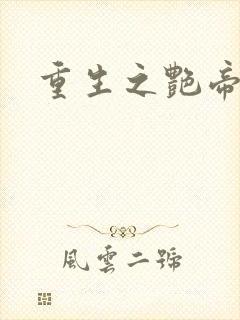 重生之艷帝
風雲二號